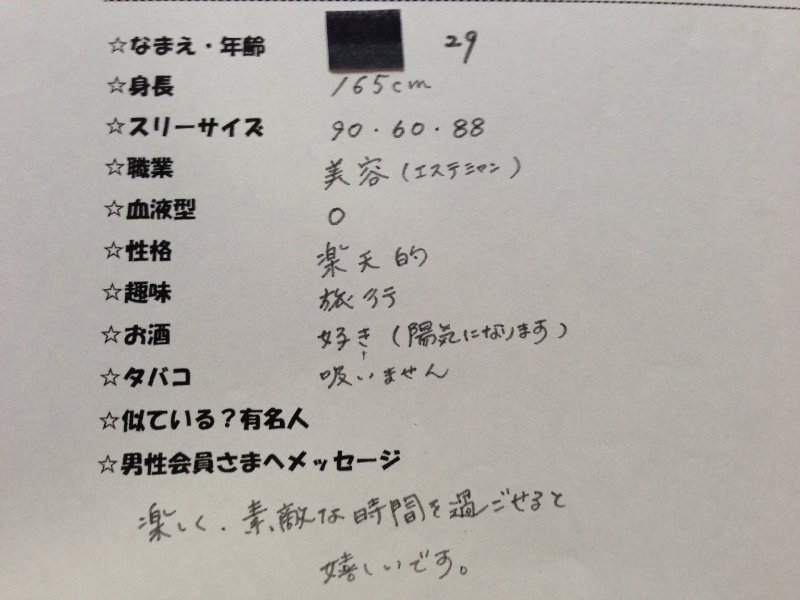 ☆なまえ・年齢 29
☆身長 165cm
☆スリーサイズ 90・60・88
☆職業 美容(エステシャン)
☆血液型 O
☆性格 楽天的
☆趣味 旅行
☆お酒 好き(陽気になります)
☆タバコ 吸いません
☆似ている?有名人
☆男性会員さまへメッセージ
楽しく、素敵な時間を過ごせると
嬉しいです。